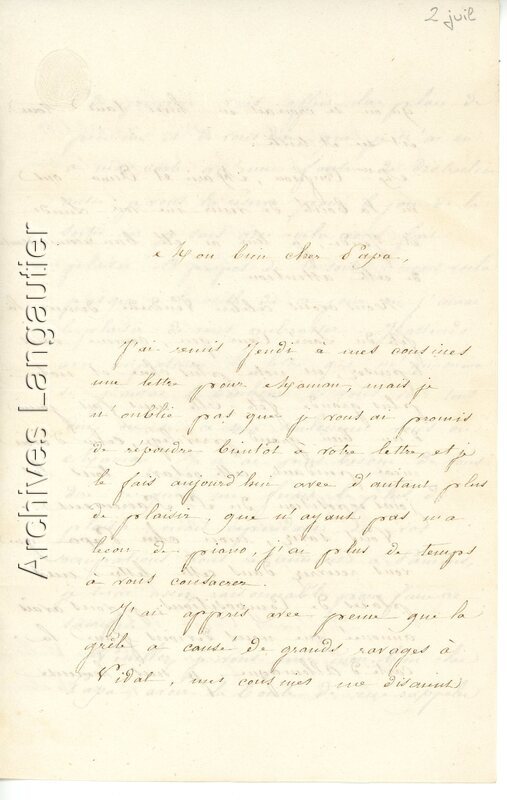 2 juil
Mon bien cher Papa,
J'ai remis Jeudi à mes cousines
une lettre pour Maman, mais je
n'oublie pas que je vous ai promis
de répondre bientôt à votre lettre, et je
le fais aujourd'hui avec d'autant plus
de plaisir, que n'ayant pas ma
leçon de piano, j'ai plus de temps
à vous consacrer.
J'ai appris avec peine que la
grêle a causé de grands ravages à
Vidal, mes cousines me disaient
Archives Langautier